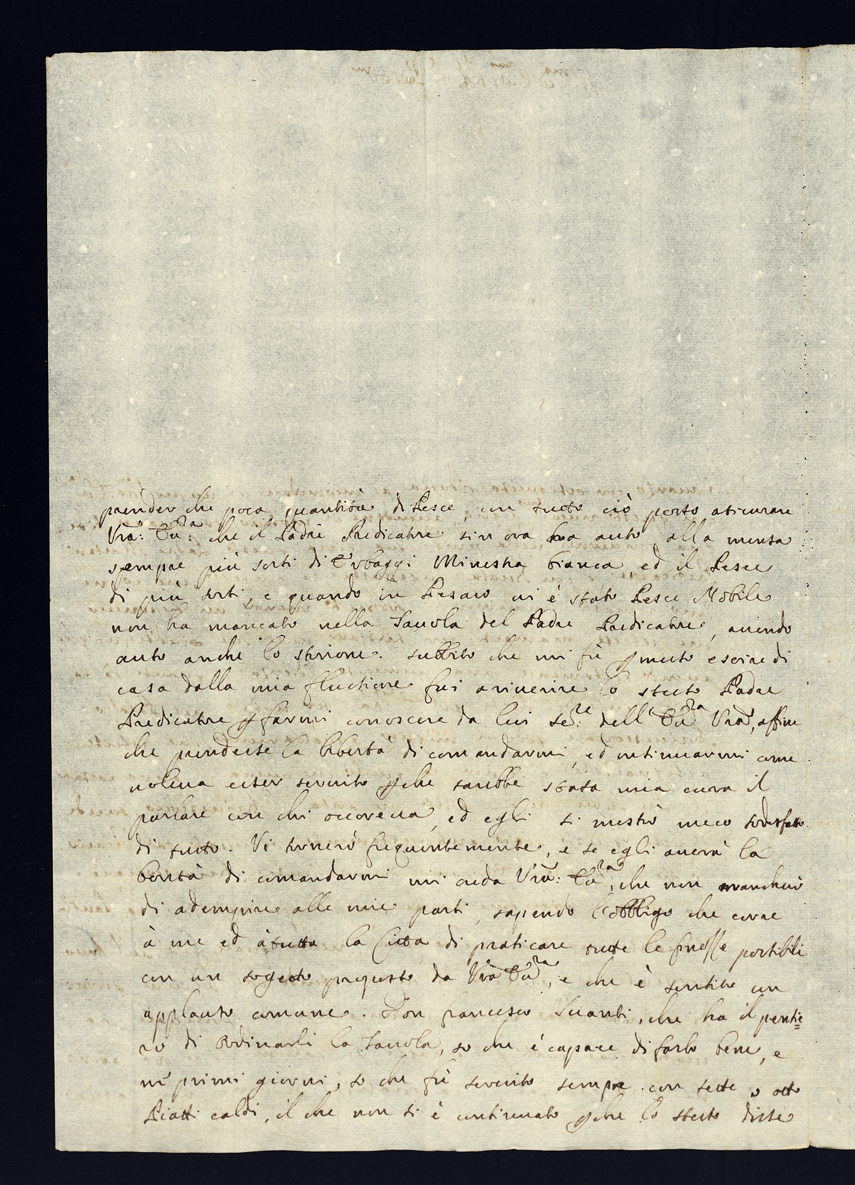 prender che poca quantità di Pesce, con tutto ciò posso assicurare
Vrã: Ecc.za: che il Padre Predicatore sin ora ha auto alla mensa
sempre più sorti di Erbaggi Minestra bianca, ed il Pesce
di più sorti, e quando in Pesaro vi è stato Pesce Nobile
non ha mancato nella Tauola del Padre Predicatore, auendo
auto anche lo storione. Subbito che mi fù pmesso escire di
casa dalla mia flussione fui a riuerire lo stesso Padre
Predicatore p farmi conoscere da lui Se.re dell' Ecc.za Vrã, affin
che prendesse la libertà di comandarmi, ed intimarmi come
uoleua esser seruito pche sarebbe stata mia cura il
parlare con chi occoreua, ed egli si mostrò meco sodisfatto
di tutto. Vi tornerò frequentemente, e se egli auerà la
bontà di comandarmi mi creda Vrã: Ecc.za, che non mancherò
di adempire alle mie parti, sapendo l'obbligo che corre
à me ed à tutta la Città di praticare tutte le finesse possibili
con un sogetto proposto da Vrã Ecc.za, e che è sentito con
applauso comune. Don Francesco, che ha il pensie=
ro di ordinarli la Tauola, so che è capace di farlo bene, e
ne' primi giorni, so che fù seruito sempre con sette, o otto
Piatti caldi, il che non si è continuato pche lo stesso disse